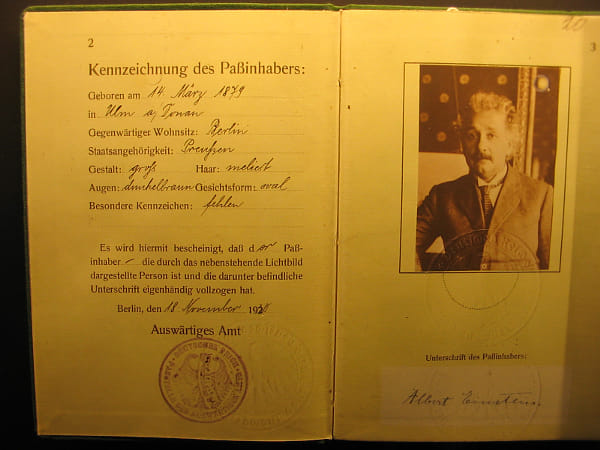 2
Kennzeichnung des Paßinhabers:
Geboren am 14. März 1879
in Ulm a/Donau
Gegenwärtiger Wohnsitz: Berlin
Staatsangehörigkeit: Preußen
Gestalt: groß Haar: meliert
Augen: dunkelbraun Gesichtsform: oval
Besondere Kennzeichen: fehlen
Es wird hiermit bescheinigt, daß der Paß-
inhaber – die durch das nebenstehende Lichtbild
dargestellte Person ist und die darunter befindliche
Unterschrift eigenhändig vollzogen hat.
Berlin, den 18 November 192
Auswärtiges Amt
DEUTSCHES REICH
20
3
Unterschrift des Paßinhabers:
Albert Einstein